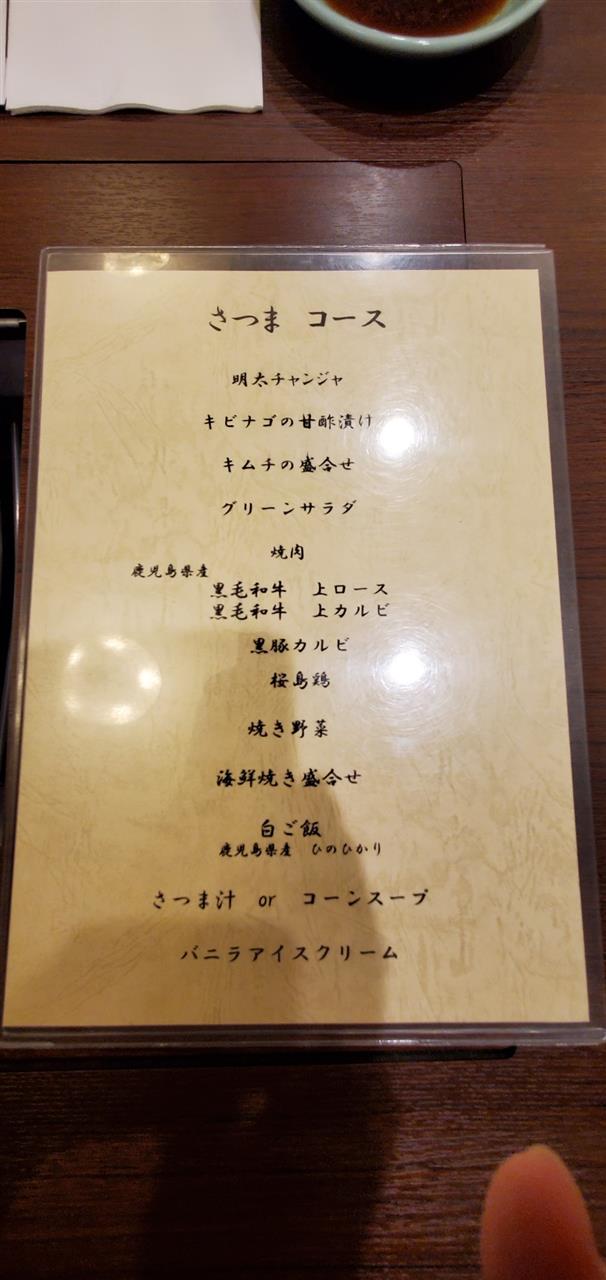 さつま コース
明太チャンジャ
キビナゴの甘酢漬け
キムチの盛合せ
グリーンサラダ
焼肉
鹿児島県産
黒毛和牛 上ロース
黒毛和牛 上カルビ
黒豚カルビ
桜島鶏
焼き野菜
海鮮焼き盛合せ
白ご飯
鹿児島県産 ひのひかり
さつま汁 or コーンスープ
バニラアイスクリーム